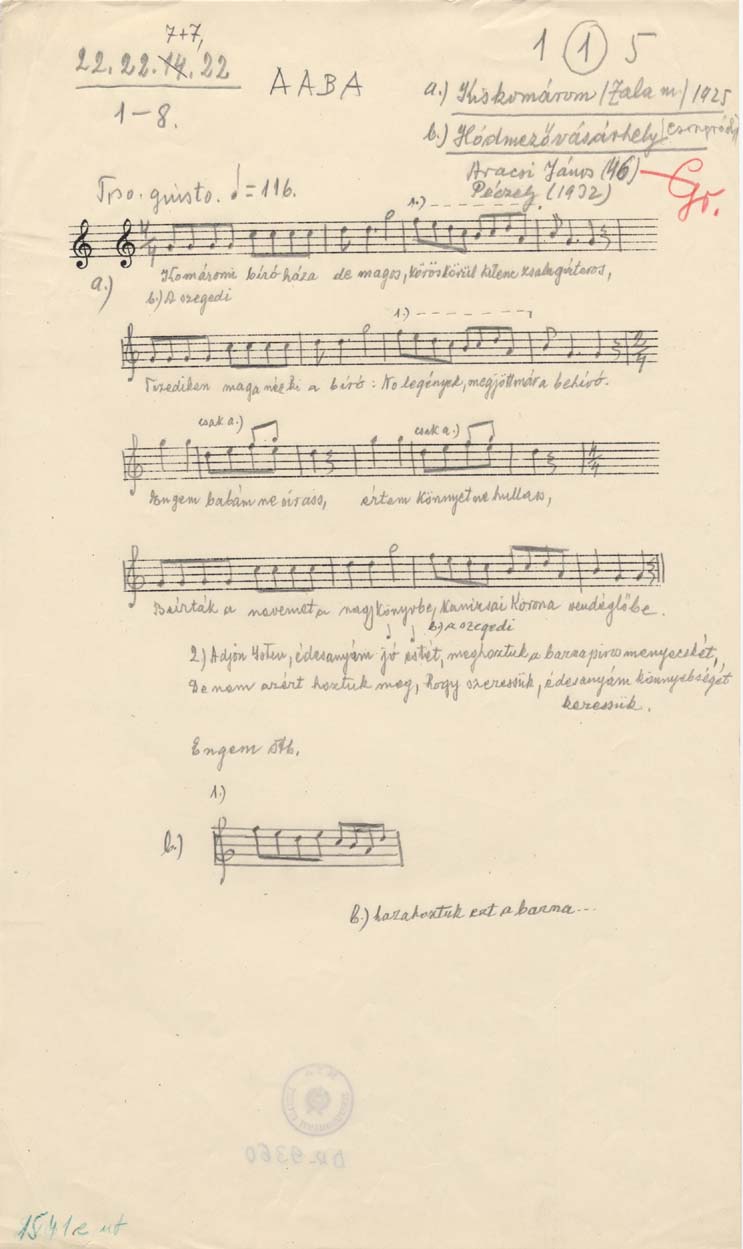 7+7,
22. 22. 14. 22
1-8.
AABA
1 1 5
a.) Kiskomárom (Zala m.) 1925
b.) Hódmezővásárhely (Csongrád)
Aracsi János (46)
Péczely (1932)
Gr.
Tpo. giusto. ♩ = 116.
1.)
a.)
Komáromi bíró háza de magos, köröskörül kilenc zsalugáteros,
b.) A szegedi
1.)
Tizediken maga néz ki a bíró: No legények, megjött már a behívó.
csak a.) csak a.)
Engem babám ne sirass, értem könnyet ne hullass,
Beírták a nevemet a nagykönyvbe, Kanizsai Korona vendéglőbe.
b.) A szegedi
2.) Adjon Isten, édesanyám jó estét, meghoztuk a barna piros menyecskét,
De nem azért hoztuk meg, hogy szeressük, édesanyám könnyebségét
keressük.
Engem stb.
1.)
b.)
b.) hazahoztuk ezt a barna...
BR-9360
1541e